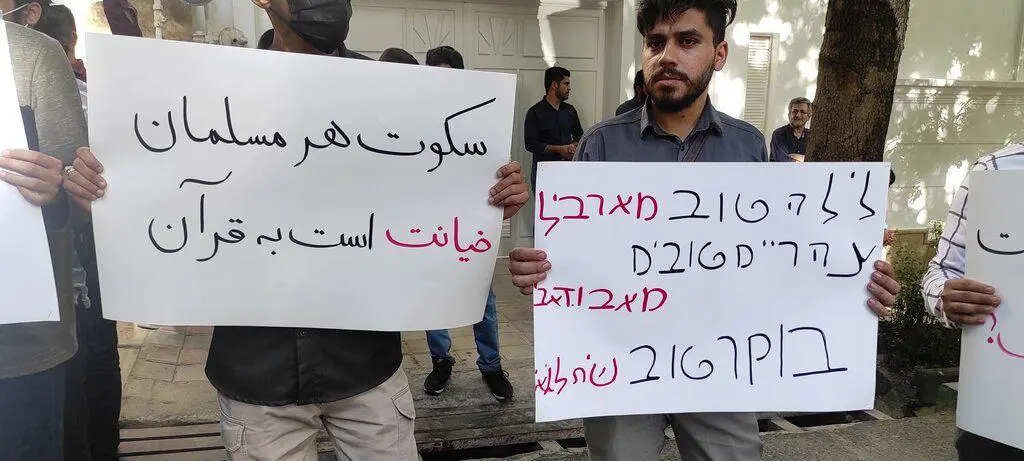 سکوت هر مسلمان
خیانت است به قرآن
לילה טוב מארביל
צהריים טובים
מאבודאבי
בוקר טוב